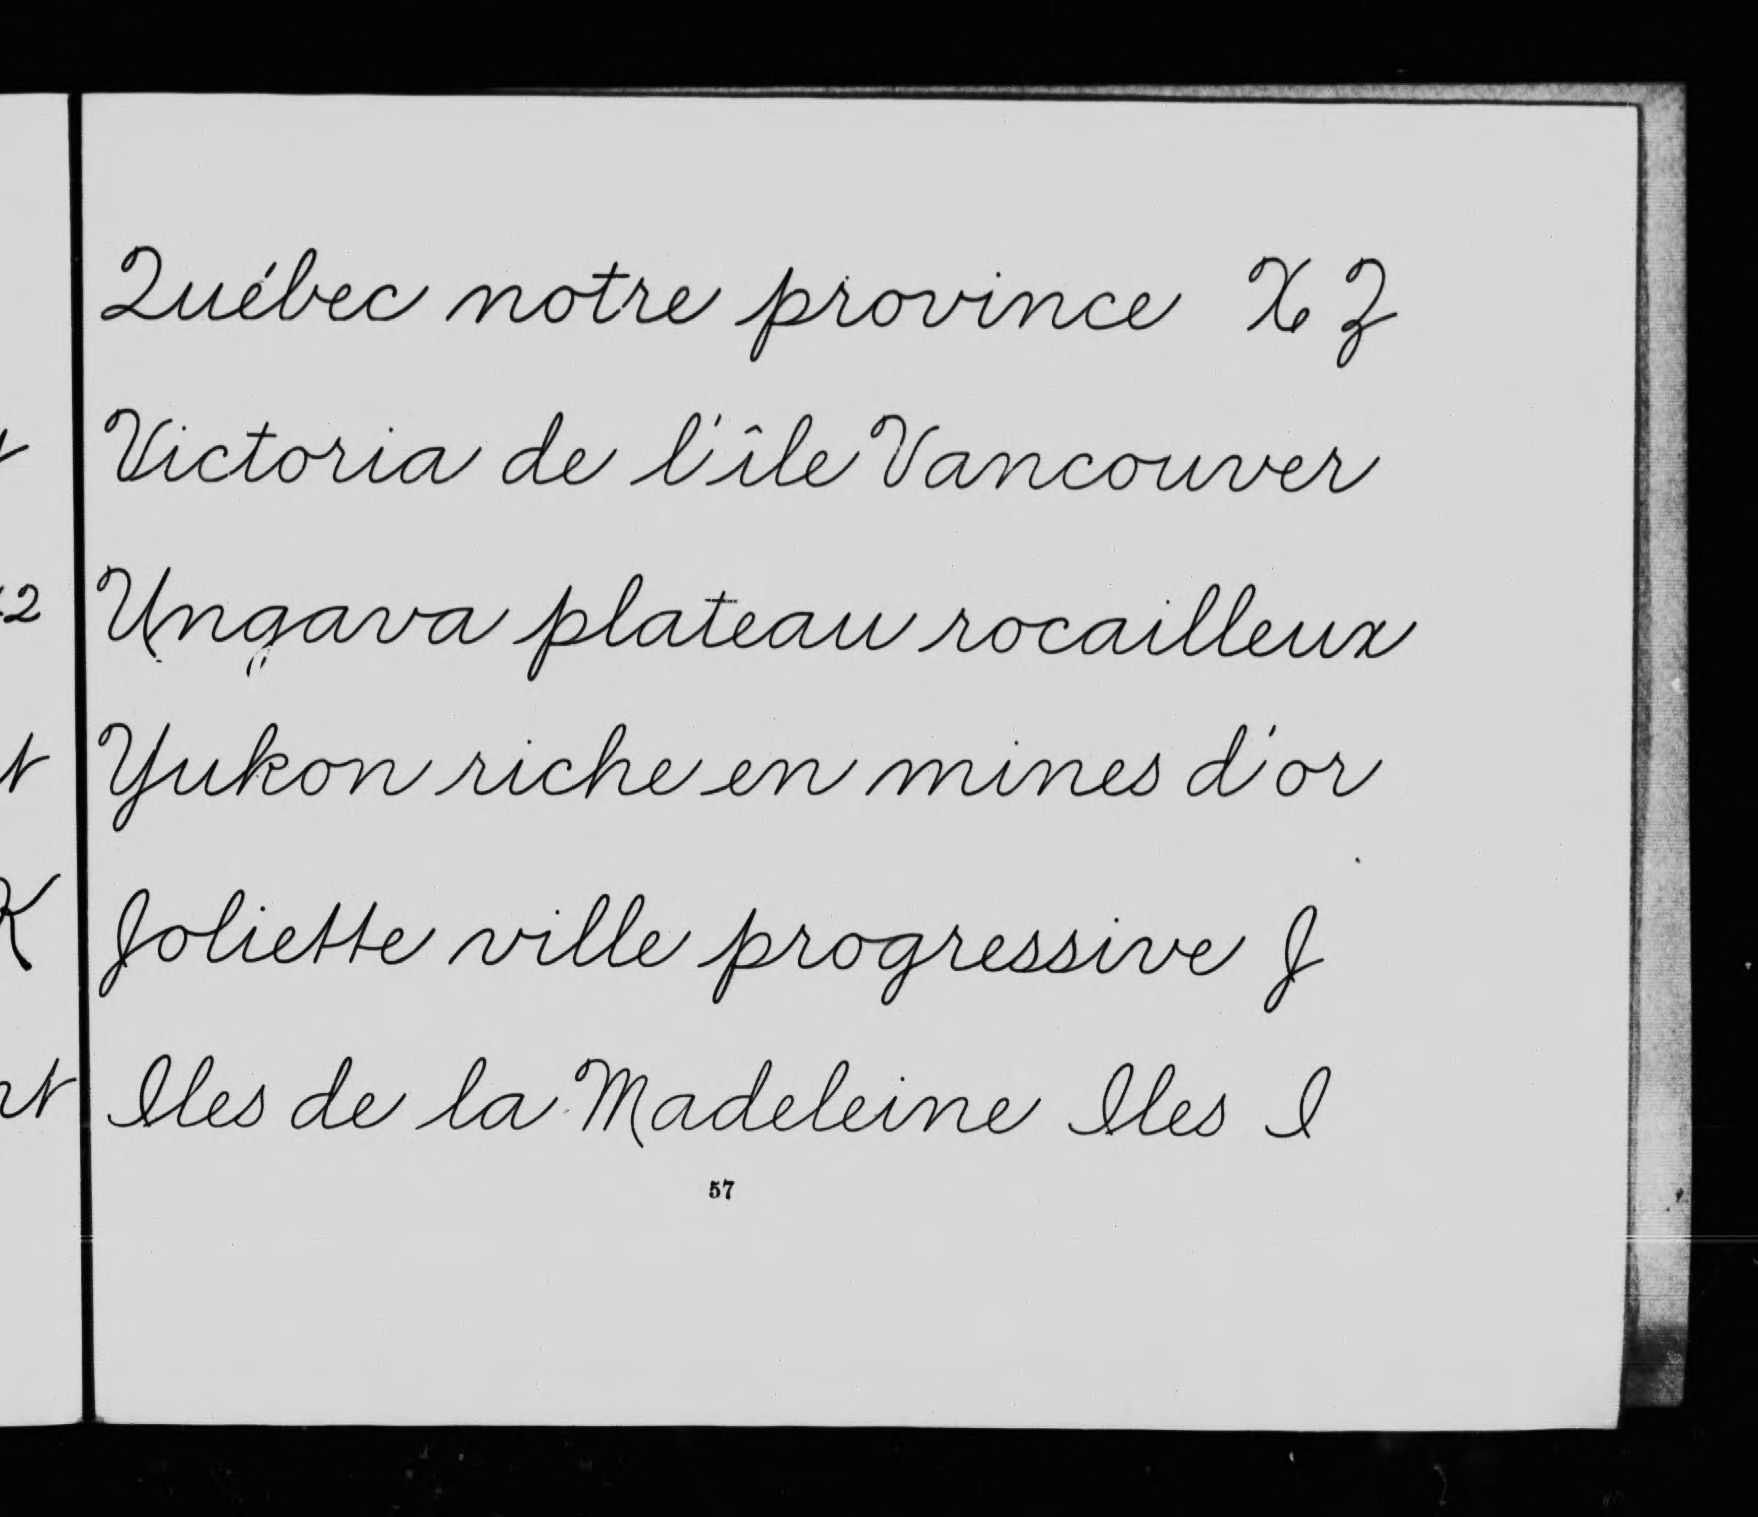 Québec notre province X Z
Victoria de l'île Vancouver
Ungava plateau rocailleux
Yukon riche en mines d'or
Joliette ville progressive J
Iles de la Madeleine Iles I
57